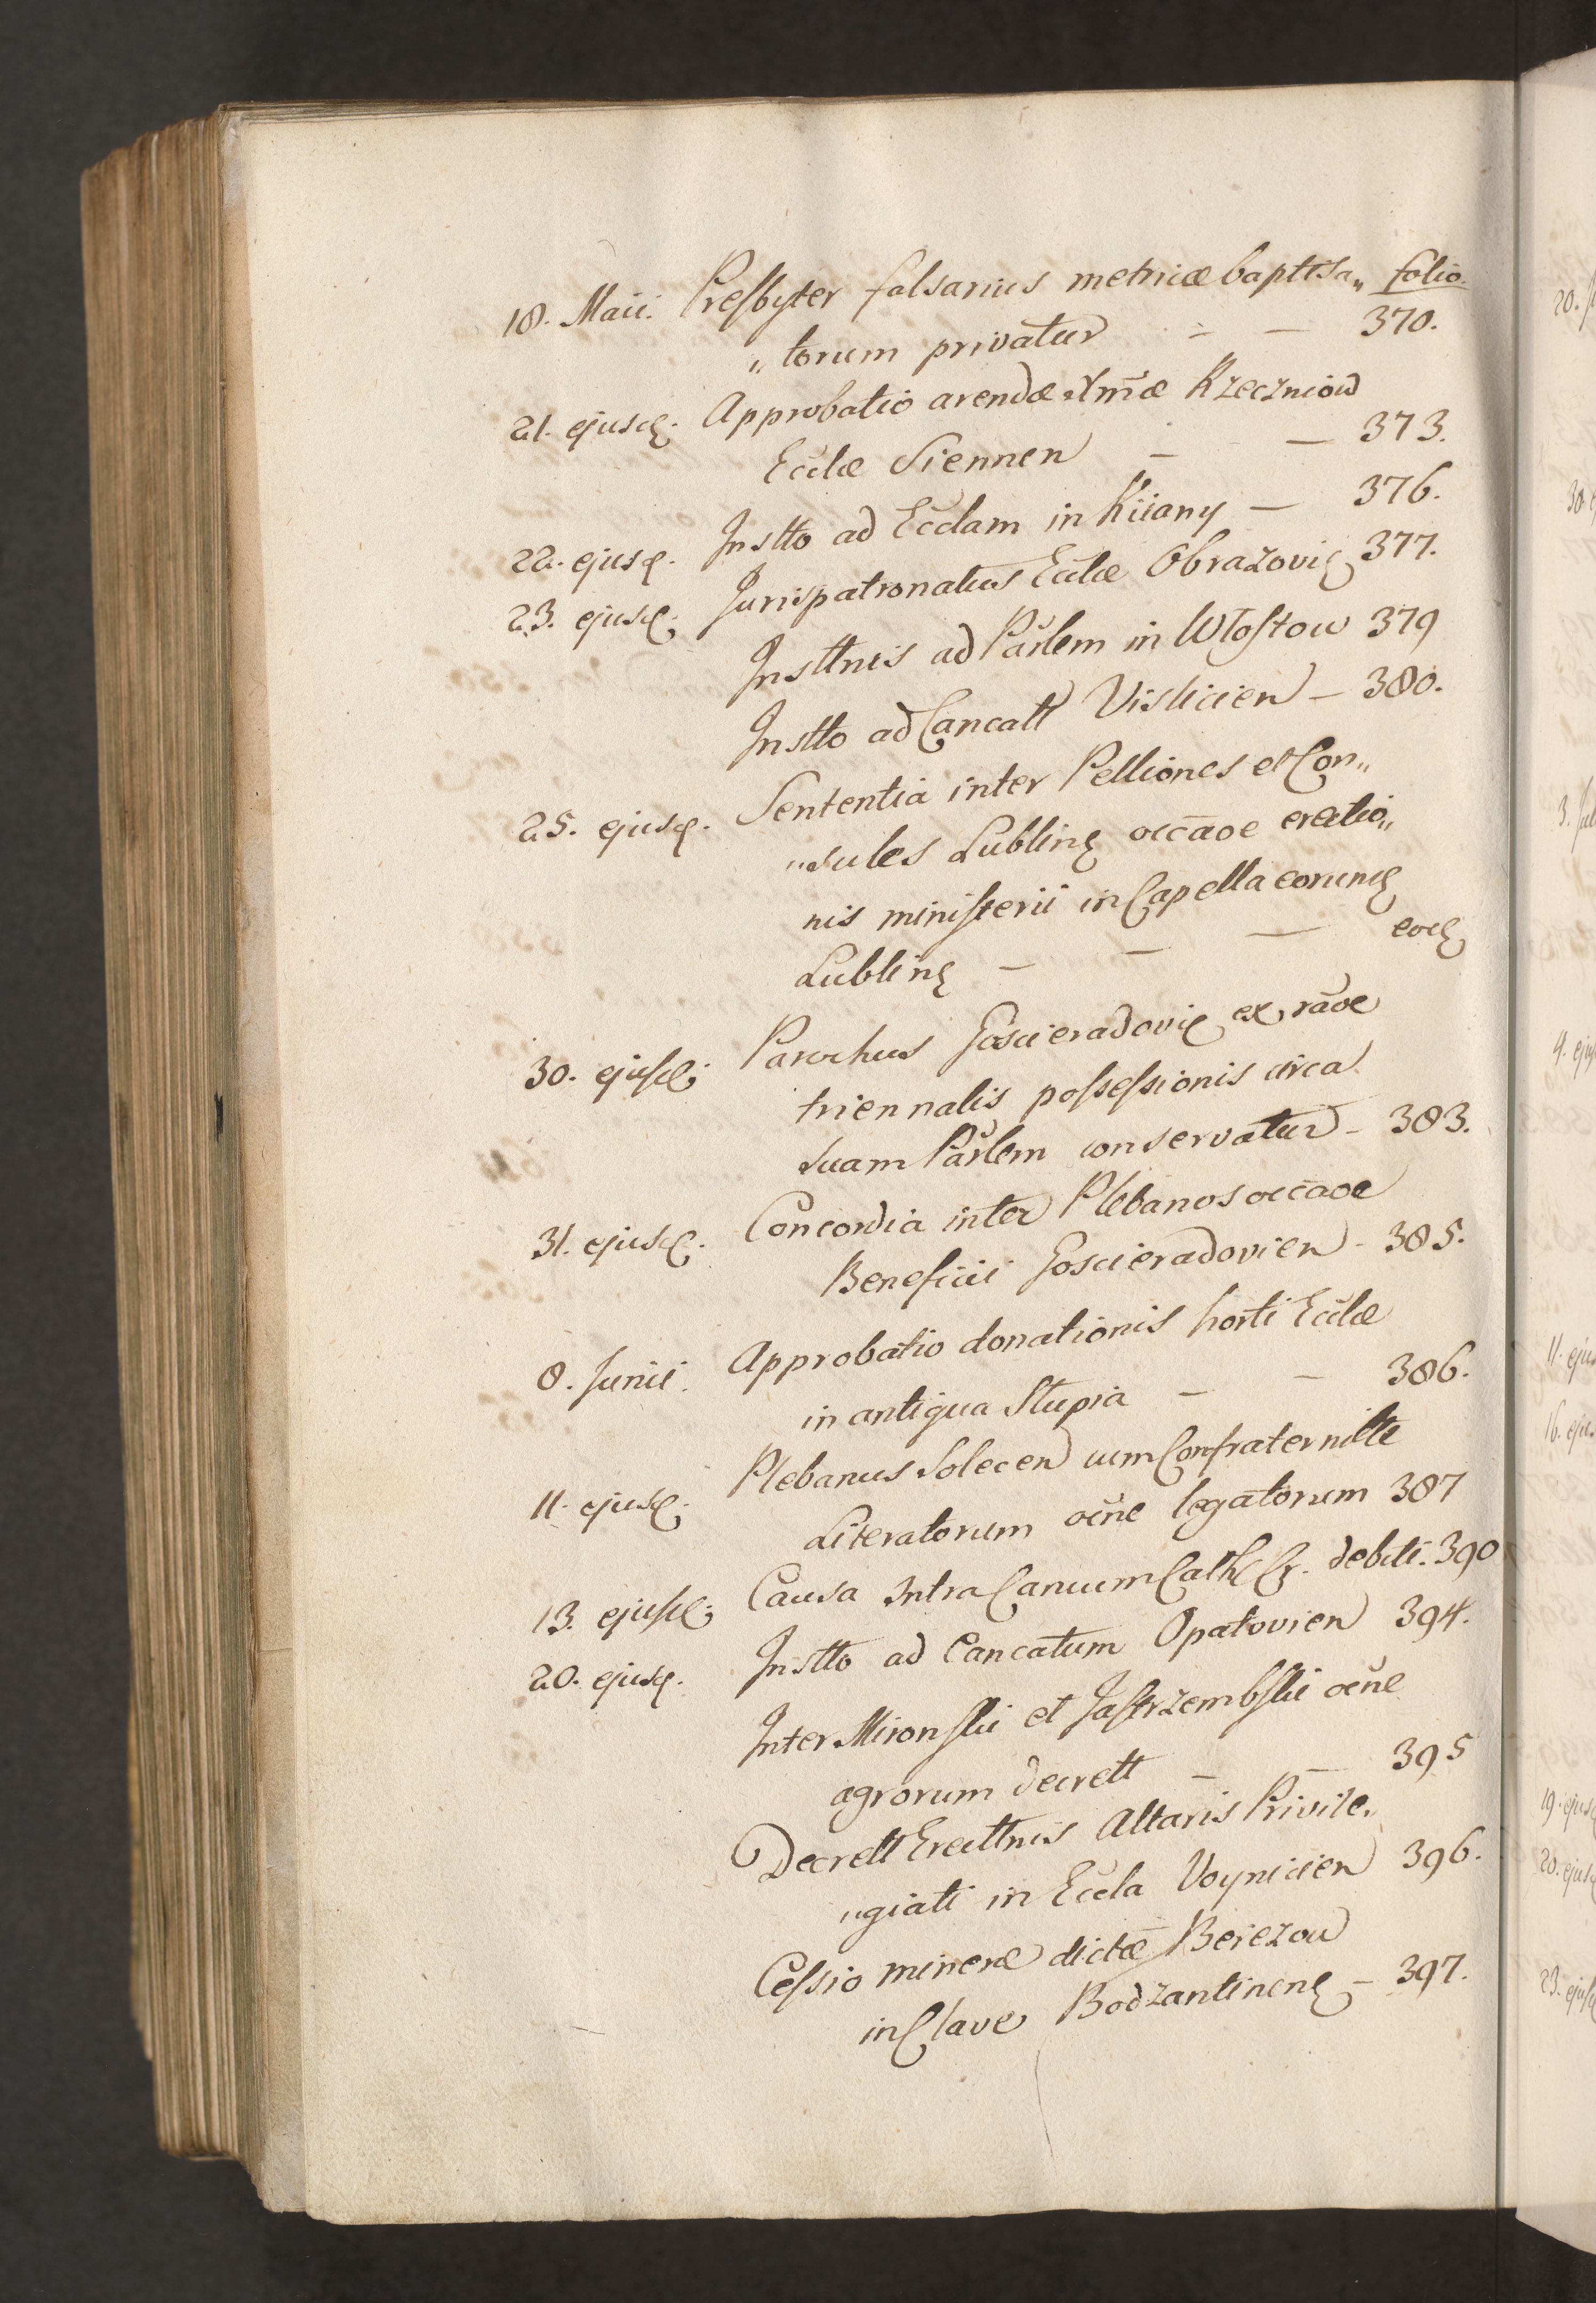 folio.
18. Maii. Presbyter falsarius metricæ baptisa„
„torum privatur - - 370.
21. ejusd. Approbatio arendæ Xmæ Rzeczniow
Ecclæ Siennen - - 373.
22. ejusd. Instto ad Ecclam in Kiiany - 376.
23. ejusd. Jurispatronatus Ecclæ Obrazovien 377.
Insttnis ad Parlem in Włostow 379
Instto ad Cancatt Vislicien - 380.
25. ejusd. Sententia inter Pelliones et Con„
„sules Lublinen occaoe erectio„
nis ministerii in Capella eorund
Lublinen - - - eod
30. ejusd. Parochus Goscieradovien ex raoe
triennalis possessionis circa
suam Parlem conservatur - 383.
31. ejusd. Concordia inter Plebanos occaoe
Beneficii Goscieradovien - 385.
8. Junii. Approbatio donationis horti Ecclæ
in antiqua Slupia - - 386.
11. ejusd. Plebanus Solecen cum Confraternitte
Literatorum oene legatorum 387
13. ejusd. Causa intra Canicum Cath Cr. debiti. 390
20. ejusd. Instto ad Cancatum Opatovien 394.
Inter Mironski et Jastrzembski oene
agrorum decrett - - 395
Decrett Erecttnis Altaris Privile„
„giati in Eccla Voynicien 396.
Cessio mineræ dictæ Berezow
in Clave Bodzantinen - 397.